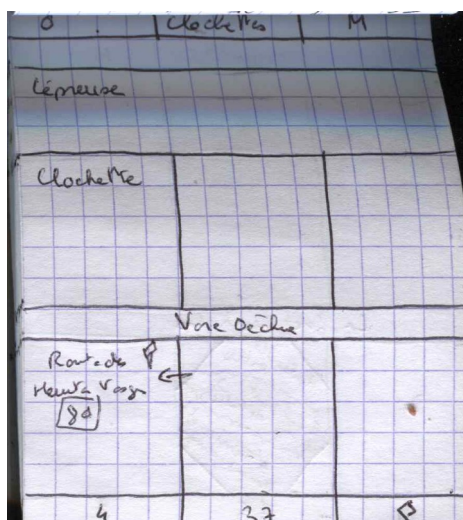 0 . Clochettes M
Lépreuse
Clochette
Voie Déchue
Route des
Hauts
80
4 37